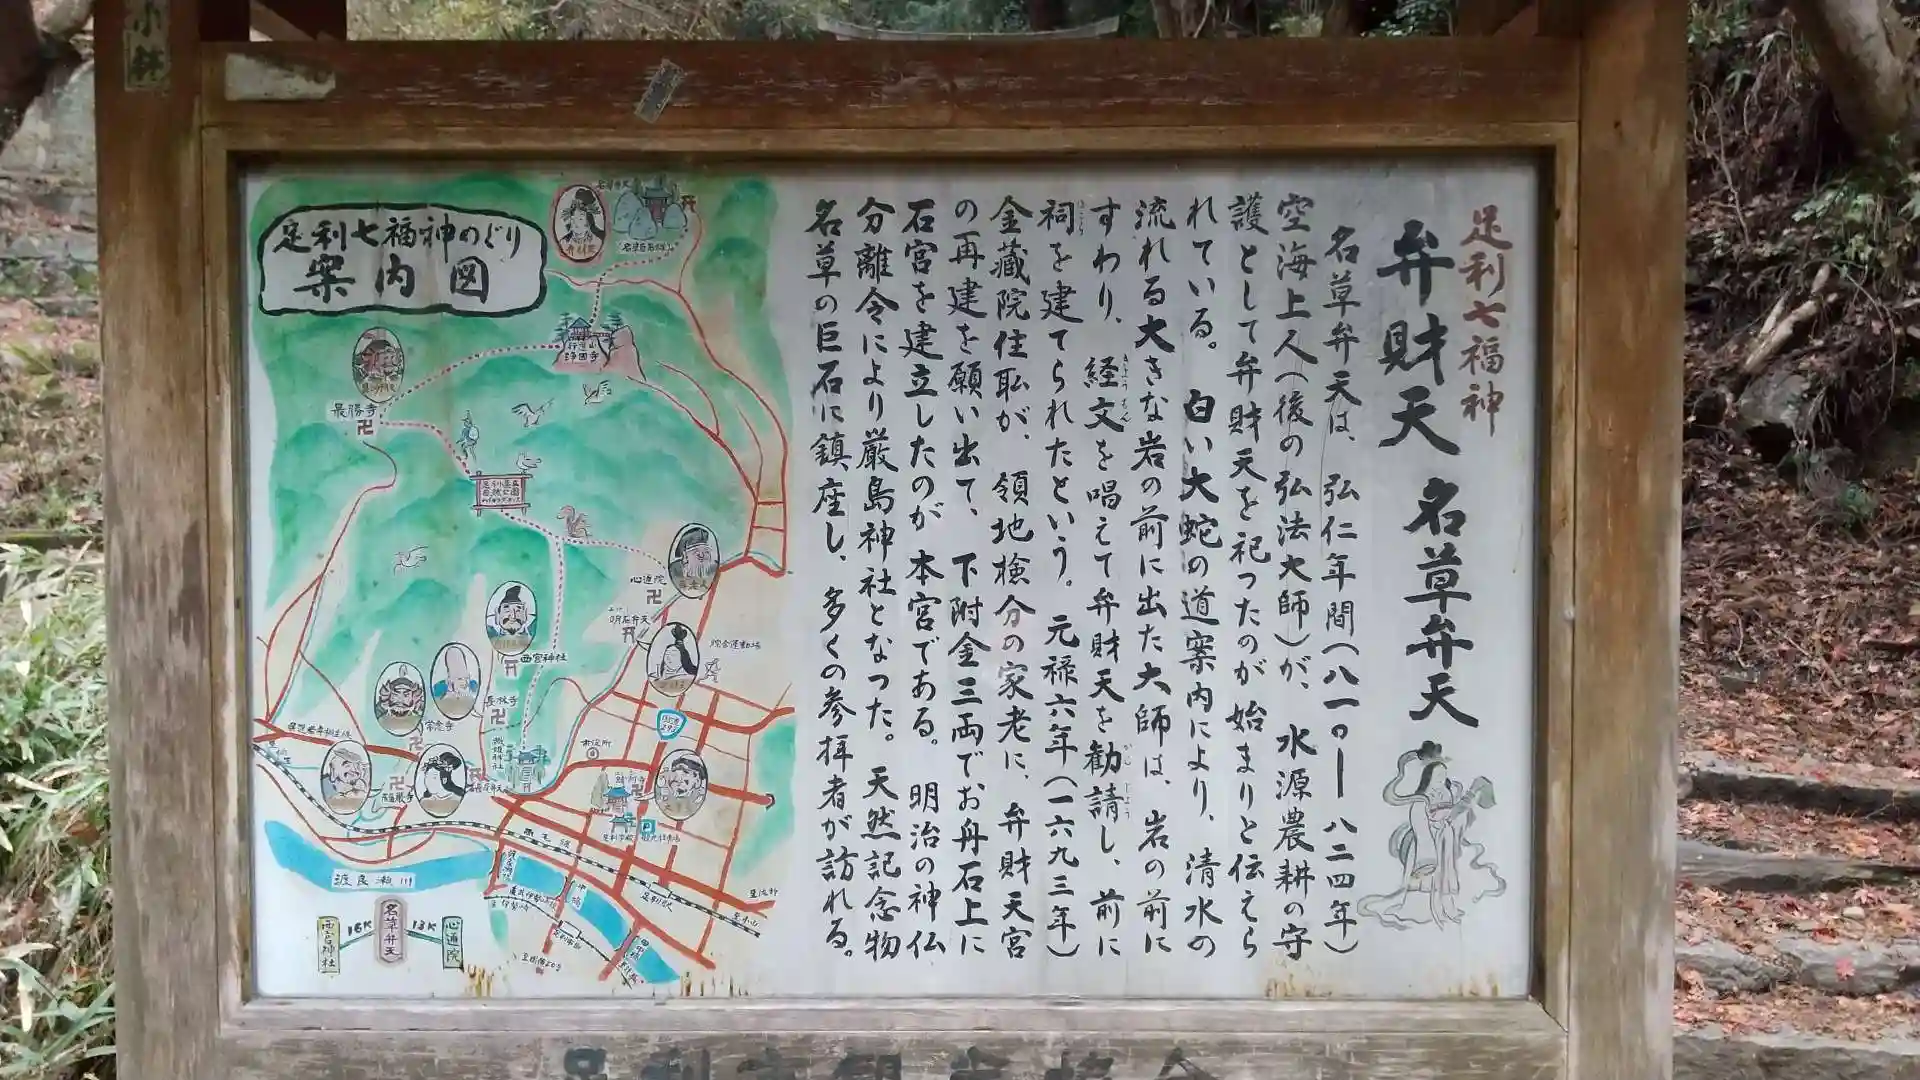 足利七福神
弁財天 名草弁天
名草弁天は、弘仁年間(八一〇ー八二四年)
空海上人(後の弘法大師)が、水源農耕の守
護として弁財天を祀ったのが始まりと伝えら
れている。白い大蛇の道案内により、清水の
流れる大きな岩の前に出た大師は、岩の前に
すわり、経文を唱えて弁財天を勧請し、前に
祠を建てられたという。元禄六年(一六九三年)
金蔵院住耺が、領地検分の家老に、弁財天宮
の再建を願い出て、下附金三両でお舟石上に
石宮を建立したのが本宮である。明治の神仏
分離令により厳島神社となった。天然記念物
名草の巨石に鎮座し、多くの参拝者が訪れる。
きょうもん
かんじょう
足利七福神めぐり
案内図
行道山
浄因寺
最勝寺
心通院
明石弁天
西宮神社
長林寺
常念寺
福厳寺
市役所
総合運動場
国道
293
両毛線
渡良瀬川
中橋
足利学校
P
西宮神社
16K
名草弁天
13K
心通院
足利市観光協会
小林